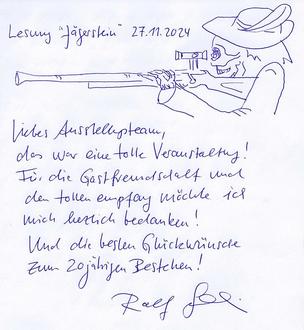 Lesung "Jägerstein" 27.11.2024
Liebes Ausstellungsteam,
das war eine tolle Veranstaltung!
Für die Gastfreundschaft und
den tollen Empfang möchte ich
mich herzlich bedanken!
Und die besten Glückwünsche
zum 20jährigen Bestehen!
Ralf